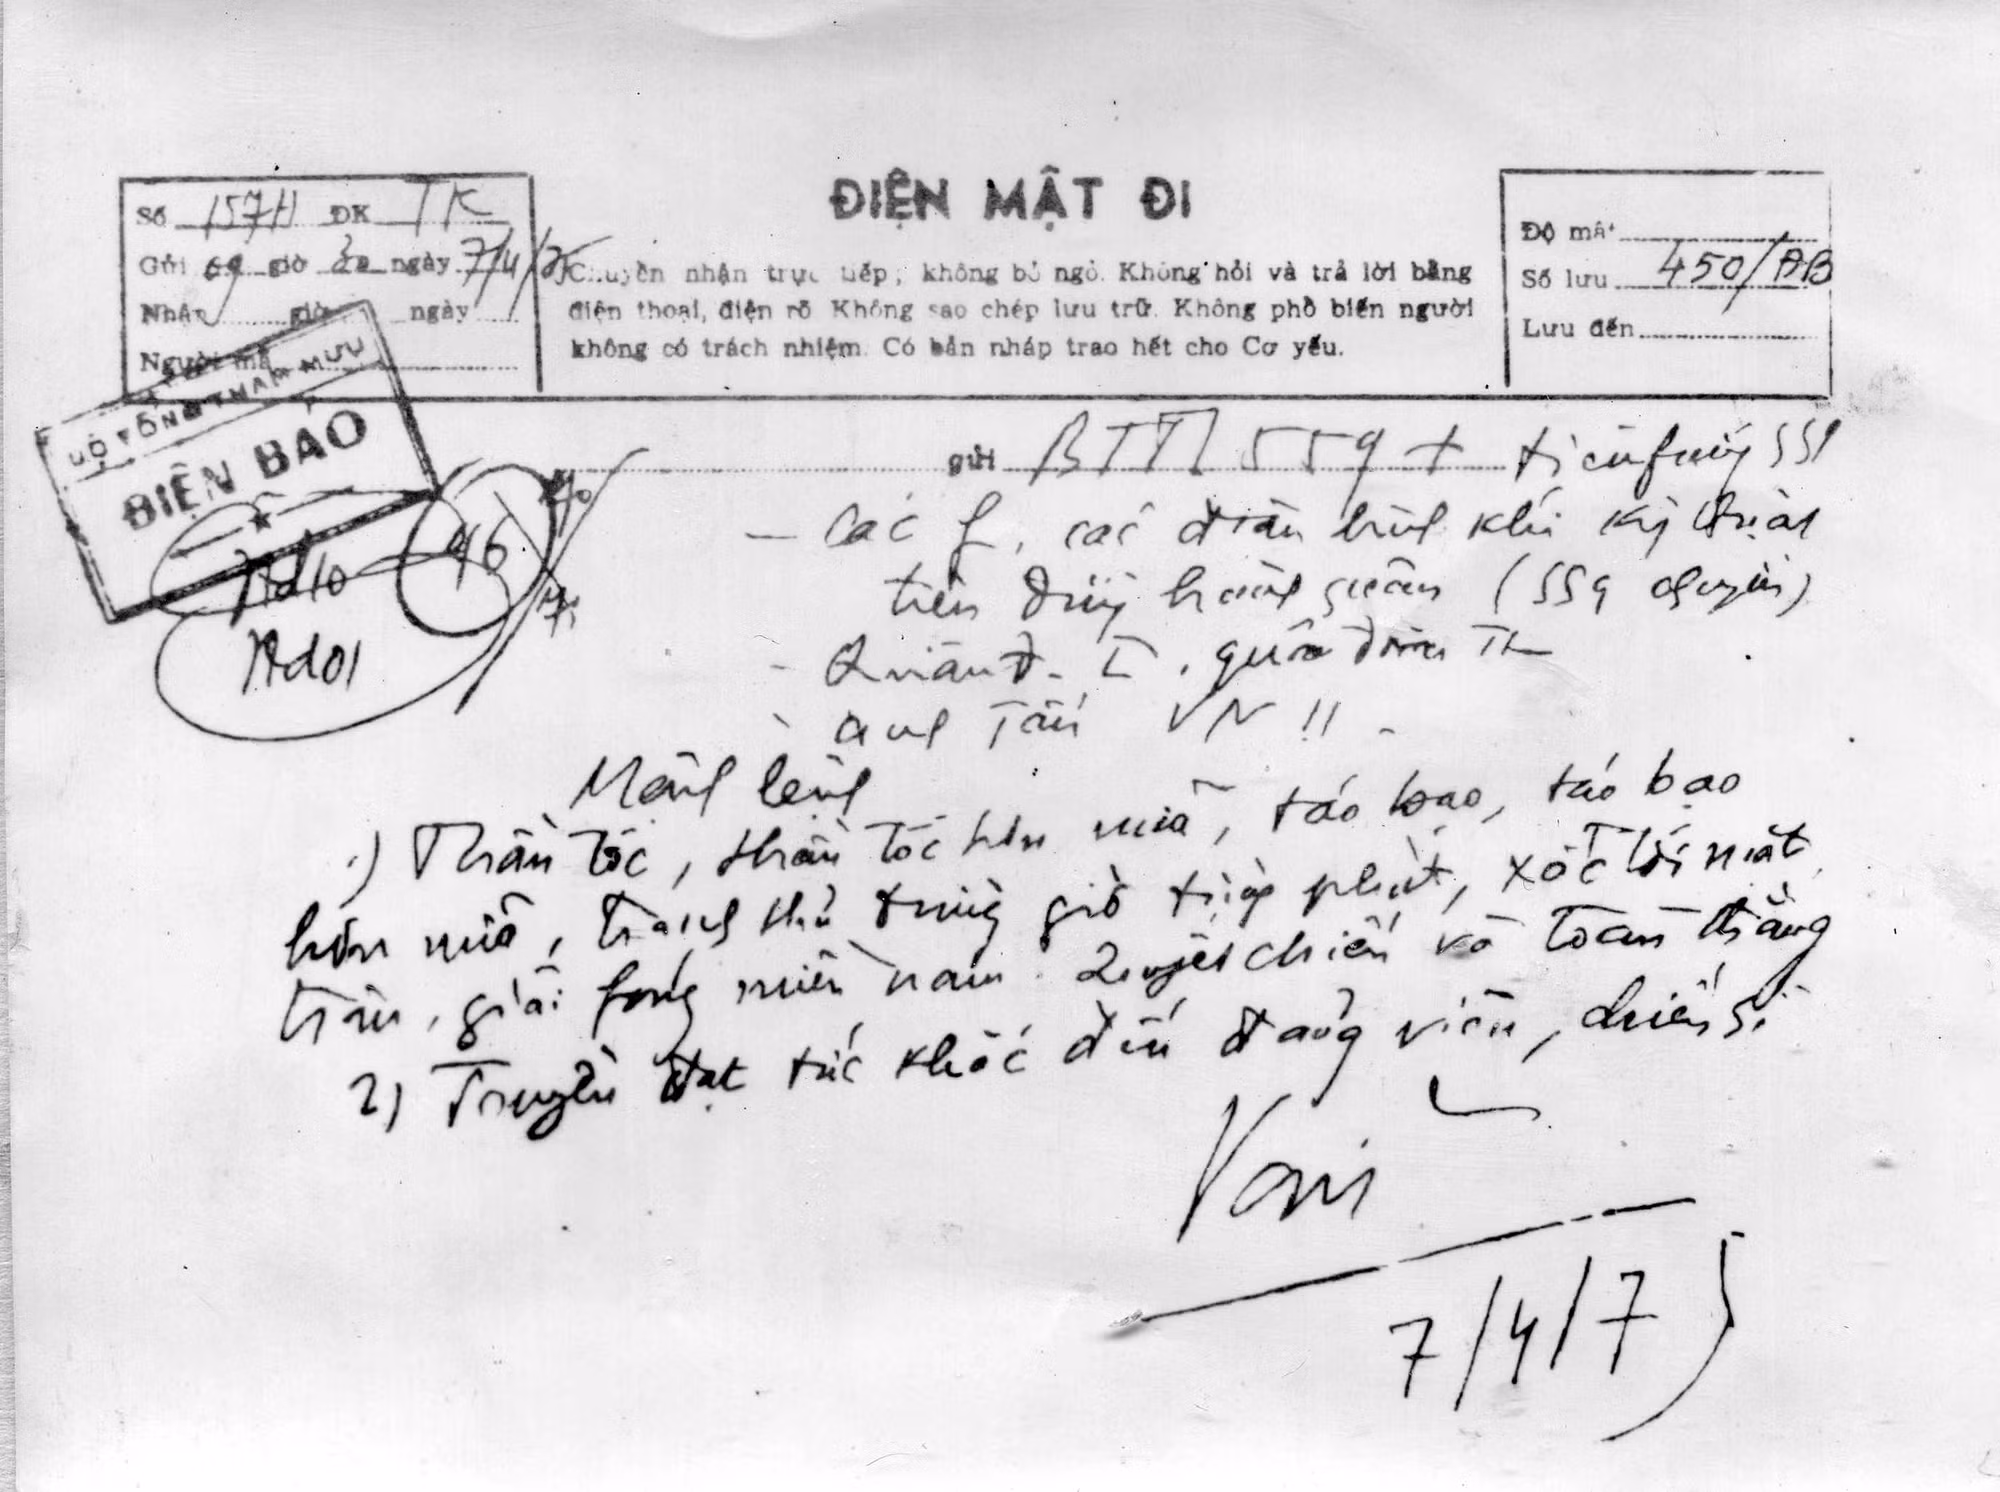 ĐIỆN MẬT ĐI
Số 157H ĐK TK
Gửi 09 giờ ngày 7/4/75
Nhận giờ ngày
Người mã
Chuyển nhận trực tiếp; không bỏ ngỏ. Không hỏi và trả lời bằng
điện thoại, điện rõ. Không sao chép lưu trữ. Không phổ biến người
không có trách nhiệm. Có bản nháp trao hết cho Cơ yếu.
Độ mật
Số lưu 450/ĐB
Lưu đến
BỘ TỔNG THAM MƯU
ĐIỆN BÁO
46
gửi BTTL 559 + tiền fương 559
- Các f, các đơn binh khí kỹ thuật
trên đường hành quân (559 chuyển)
- Quân đ. I, quân đoàn
- anh Tấn
Mệnh lệnh
1) Thần tốc, thần tốc hơn nữa, táo bạo, táo bạo
hơn nữa, tranh thủ từng giờ từng phút, xốc tới mặt
trận, giải fóng miền nam. Quyết chiến và toàn thắng
2) Truyền đạt tức khắc đến đảng viên, chiến sĩ
Văn
7/4/75